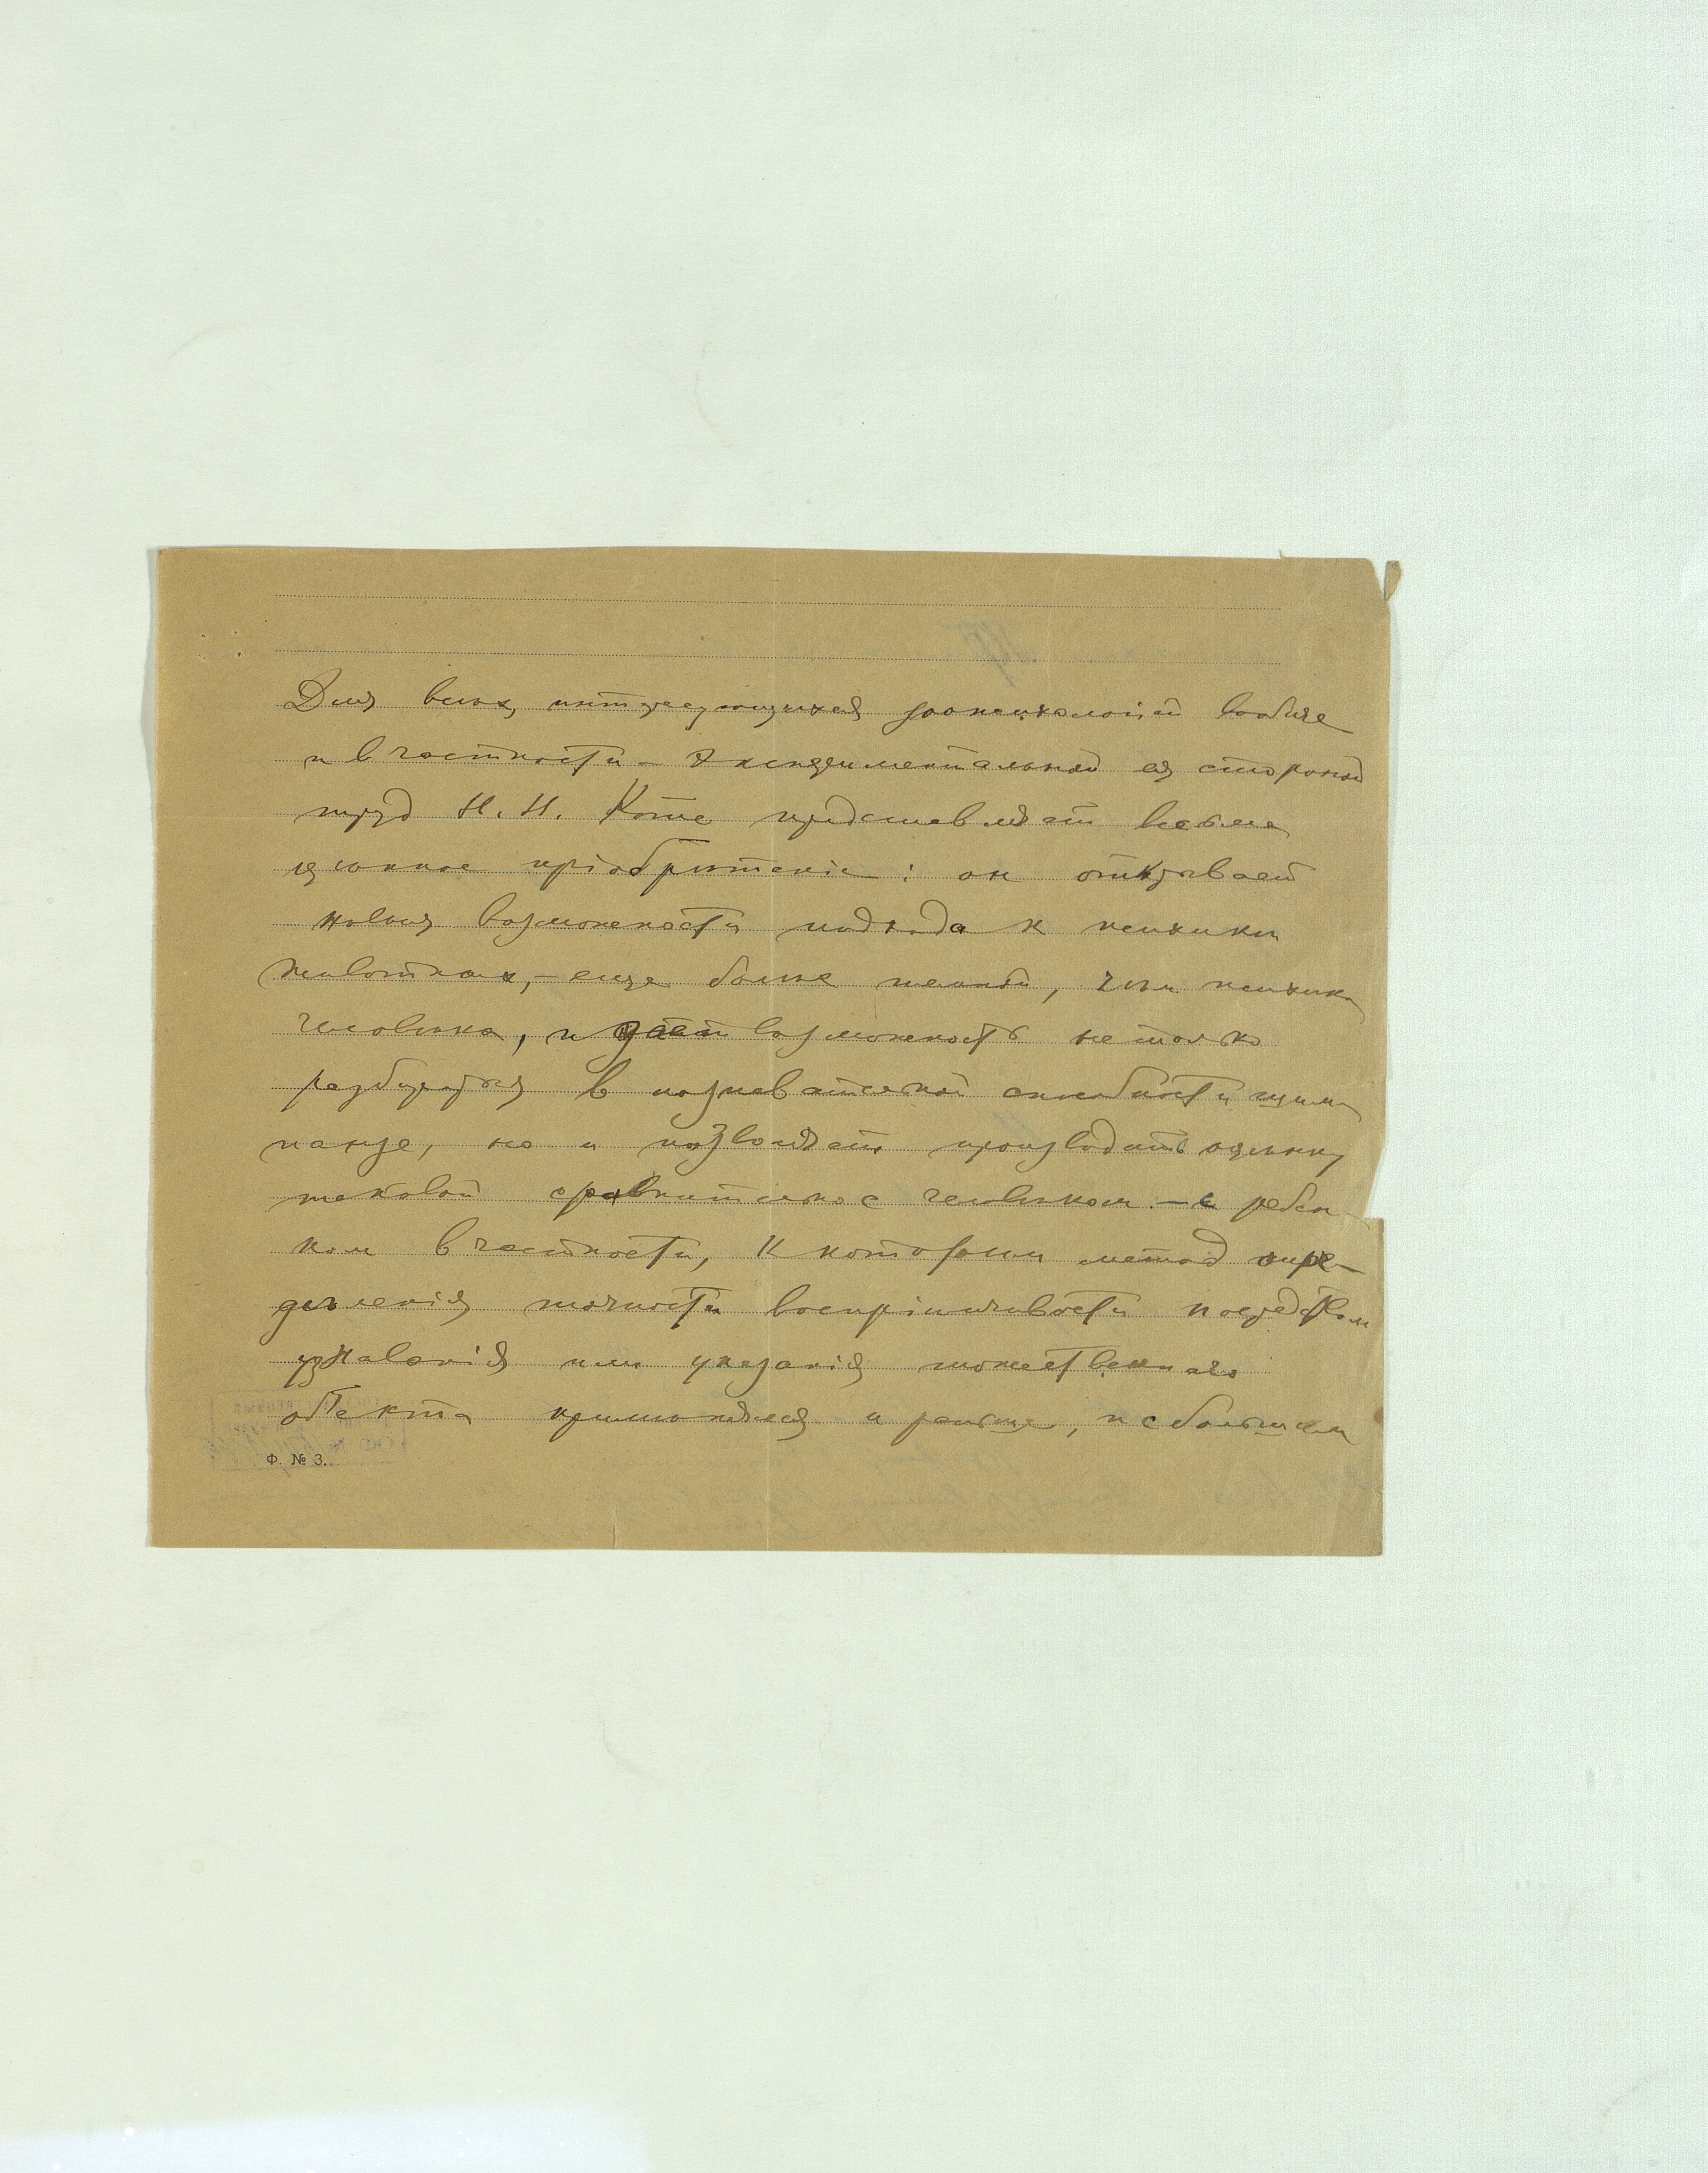 Для всѣх, интересующихся зоопсихологіей вообще
и в частности – экспериментальной ея стороной
труд Н. Н. Коте представляет весьма
цѣнное пріобрѣтеніе: он открывает
новыя возможности подхода к психикѣ
животных, – еще болѣе темной, чѣм психика
человѣка, и дает возможность не только
разбираться в познавательной способности шим
панзе, но и позволяет производить оцѣнку
таковой сравнительно с человѣком – с ребен-
ком в частности, к которому метод опре-
дѣленія точности воспріимчивости посредством
узнаванія или указанія тожественнаго
объекта примѣнялся и раньше, и с большим
Ф. № 3.